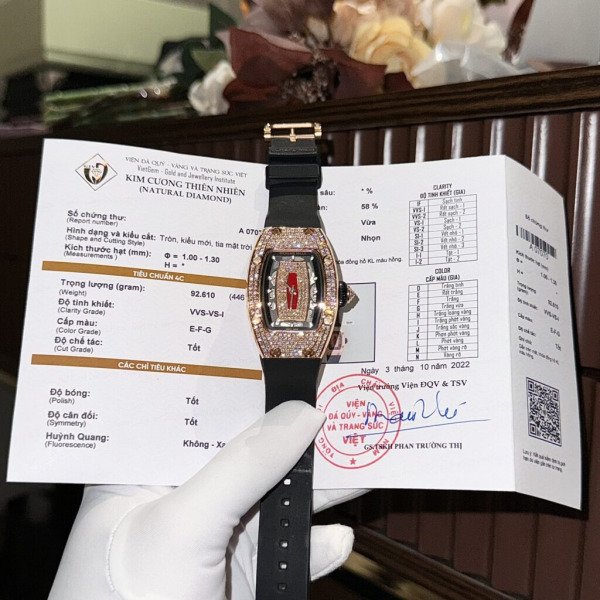 VIỆN ĐÁ QUÝ - VÀNG VÀ TRANG SỨC VIỆT
VietGem - Gold and Jewellery Institute
KIM CƯƠNG THIÊN NHIÊN
(NATURAL DIAMOND)
Số chứng thư:
(Report number)
A 070
Hình dạng và kiểu cắt: Tròn, kiểu mới, tia mặt trời
(Shape and Cutting Style)
Kích thước hạt (mm)
(Measurements)
Φ = 1.00 - 1.30
H = *
TIÊU CHUẨN 4C
Trọng lượng (gram):
(Weight)
92.610 (446
Độ tinh khiết:
(Clarity Grade)
VVS-VS-I
Cấp màu:
(Color Grade)
E-F-G
Độ chế tác:
(Cut Grade)
Tốt
CÁC CHỈ TIÊU KHÁC
Độ bóng:
(Polish)
Tốt
Độ cân đối:
(Symmetry)
Tốt
Huỳnh Quang:
(Fluorescence)
Không - Xa
sâu: * %
58 %
Vừa
Nhọn
đồng hồ KL màu hồng.
CLARITY
ĐỘ TINH KHIẾT (GIA)
IF
VVS-1
VVS-2
VS-1
VS-2
SI-1
SI-2
I-1
I-2
COLOR
CẤP MÀU (GIA)
D Trắng tinh
E Rất trắng
F Trắng
G Trắng vừa
H Trắng thoáng vàng
I Trắng phớt vàng
J Trắng sắc vàng
K Phớt vàng
M Vàng
N Vàng rõ
Ngày 3 tháng 10 năm 2022
Viện trưởng Viện ĐQV & TSV
VIỆN
ĐÁ QUÝ-VÀNG
VÀ TRANG SỨC
VIỆT
GS.TSKH PHAN TRƯỜNG THỊ
1.00 - 1.30
E-F-G
Tốt